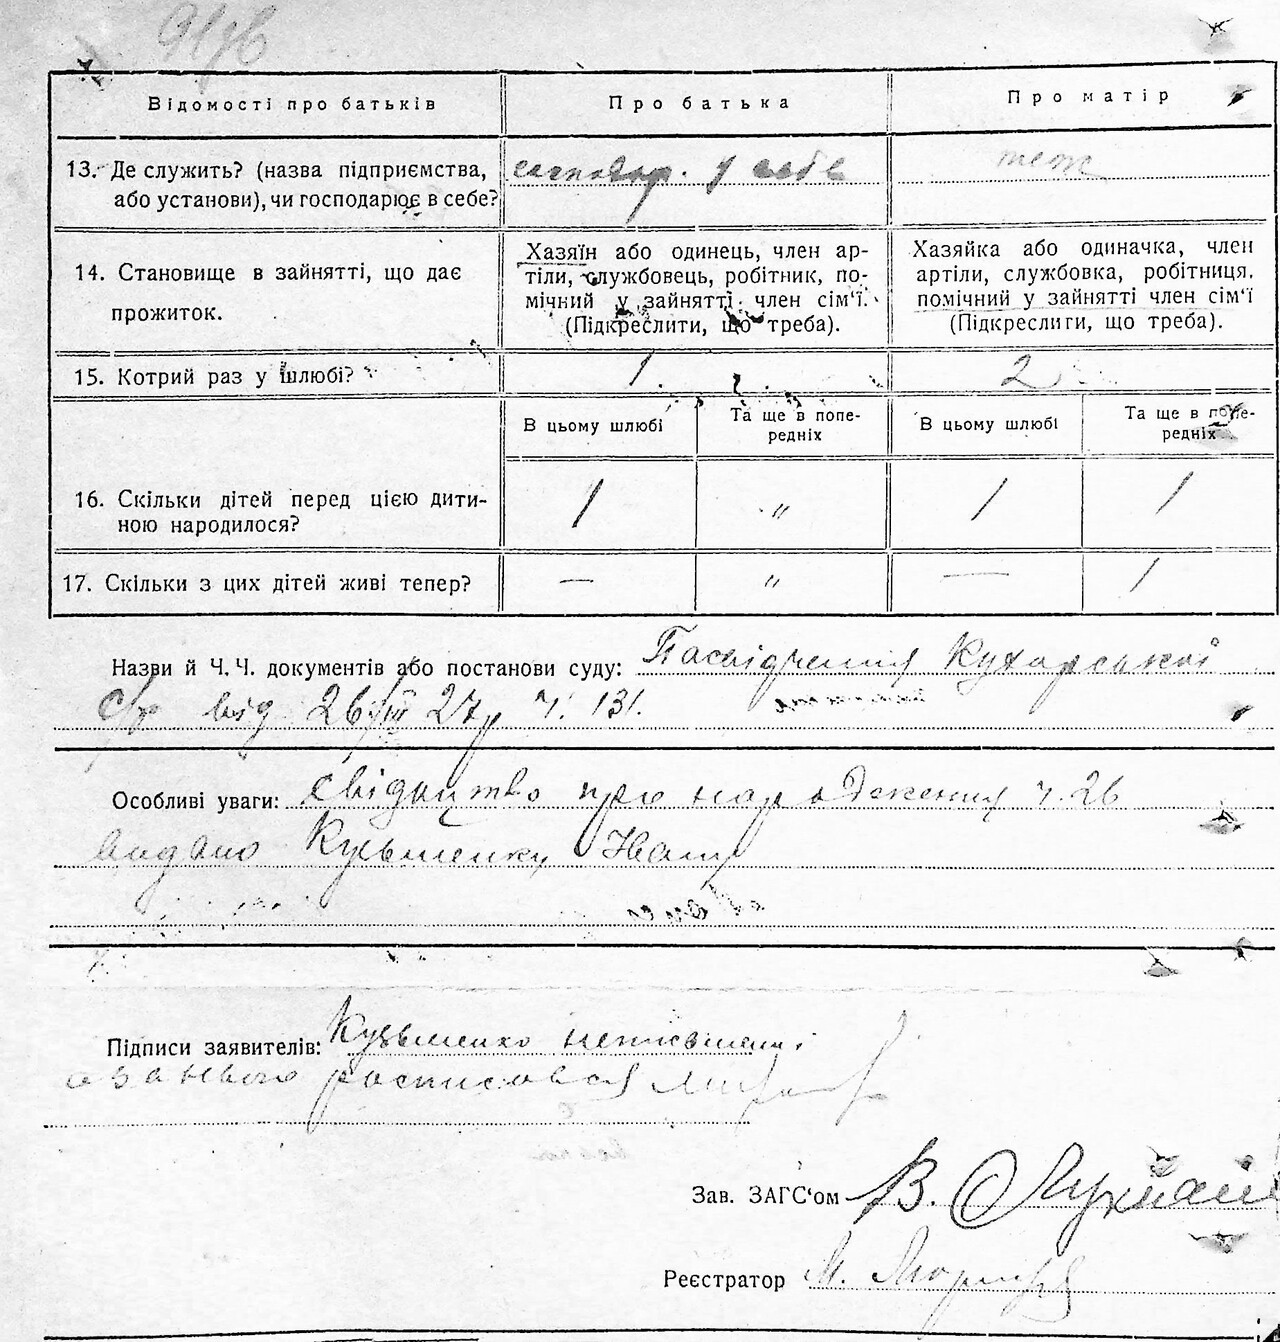 Відомості про батьків
Про батька
Про матір
13. Де служить? (назва підприємства, або установи), чи господарює в себе?
господар. у себе
теж
14. Становище в зайнятті, що дає прожиток.
Хазяїн або одинець, член ар-
тіли, службовець, робітник, по-
мічний у зайнятті член сім'ї.
(Підкреслити, що треба).
Хазяйка або одиначка, член
артіли, службовка, робітниця,
помічний у зайнятті член сім'ї
(Підкреслити, що треба).
15. Котрий раз у шлюбі?
1.
2
В цьому шлюбі
Та ще в попе-
редніх
В цьому шлюбі
Та ще в попе-
редніх
16. Скільки дітей перед цією дити-
ною народилося?
1
"
1
1
17. Скільки з цих дітей живі тепер?
—
"
—
1
Назви й Ч.Ч. документів або постанови суду: Посвідчення Кухарської
с/р від 26/III 27р ч. 131.
Особливі уваги: Свідоцтво про народження ч. 26
видано Кузьменку Івану
Підписи заявителів: Кузьменко неписьменн.
а за нього росписався
Зав. ЗАГС'ом В.
Реєстратор М.